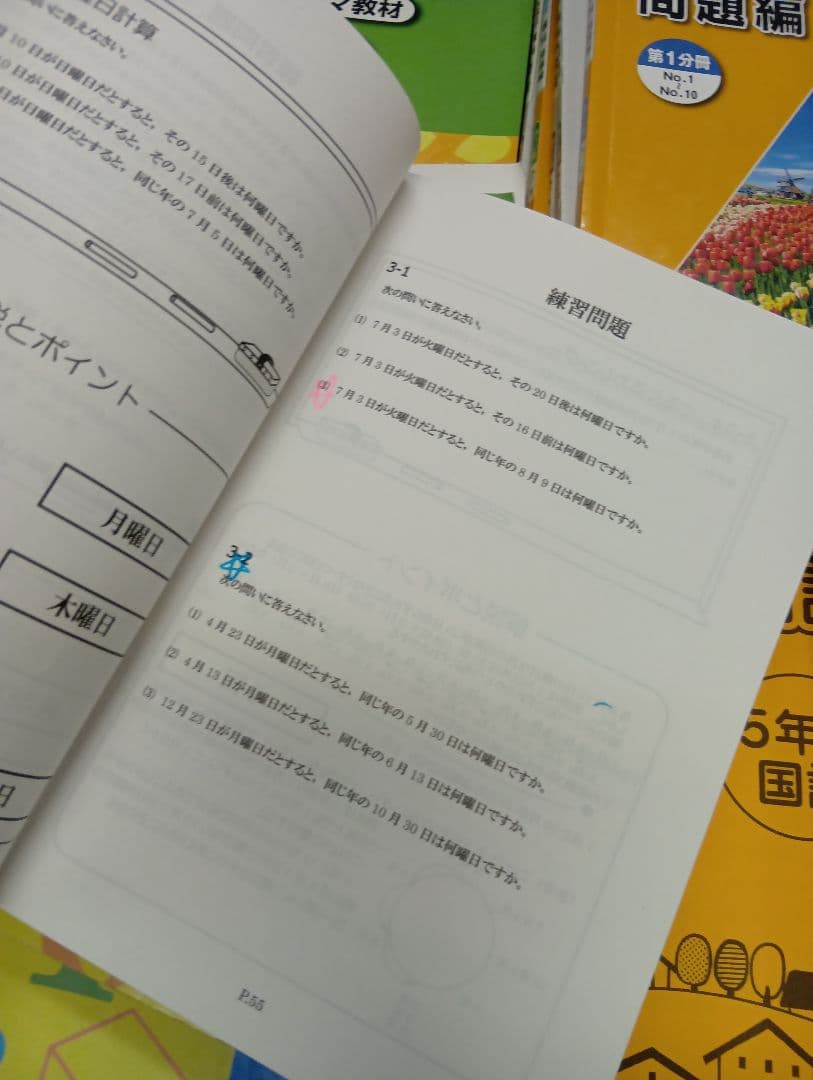 マ教材
問題編
第1分冊
No.1
〜
No.10
日計算
答えなさい。
10日が日曜日だとすると，その15日後は何曜日ですか。
0日が日曜日だとすると，その17日前は何曜日ですか。
日が日曜日だとすると，同じ年の7月5日は何曜日ですか。
とポイント
月曜日
木曜日
日
練習問題
3-1
次の問いに答えなさい。
(1) 7月3日が火曜日だとすると，その20日後は何曜日ですか。
(2) 7月3日が火曜日だとすると，その16日前は何曜日ですか。
(3) 7月3日が火曜日だとすると，同じ年の8月9日は何曜日ですか。
3-2
次の問いに答えなさい。
(1) 4月23日が月曜日だとすると，同じ年の5月30日は何曜日ですか。
(2) 4月13日が月曜日だとすると，同じ年の6月13日は何曜日ですか。
(3) 12月23日が月曜日だとすると，同じ年の10月30日は何曜日ですか。
P.55
5年
国